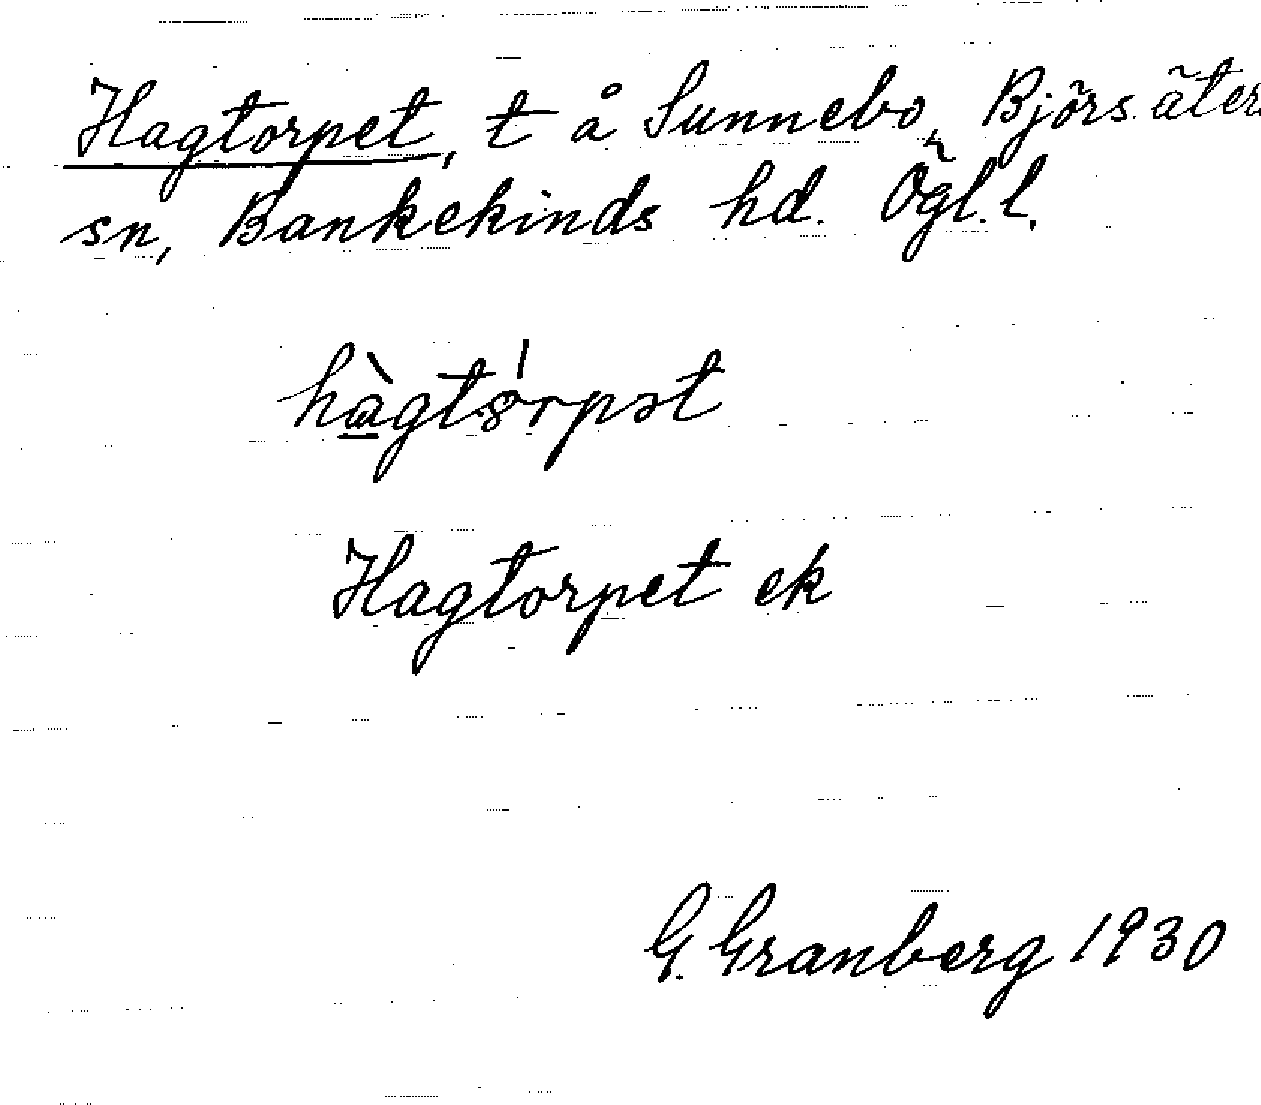 Hagtorpet, t å Sunnebo, Björsäters
sn, Bankekinds hd. Ögl. l.
hàgtó̤rpət
Hagtorpet ek
G. Granberg 1930